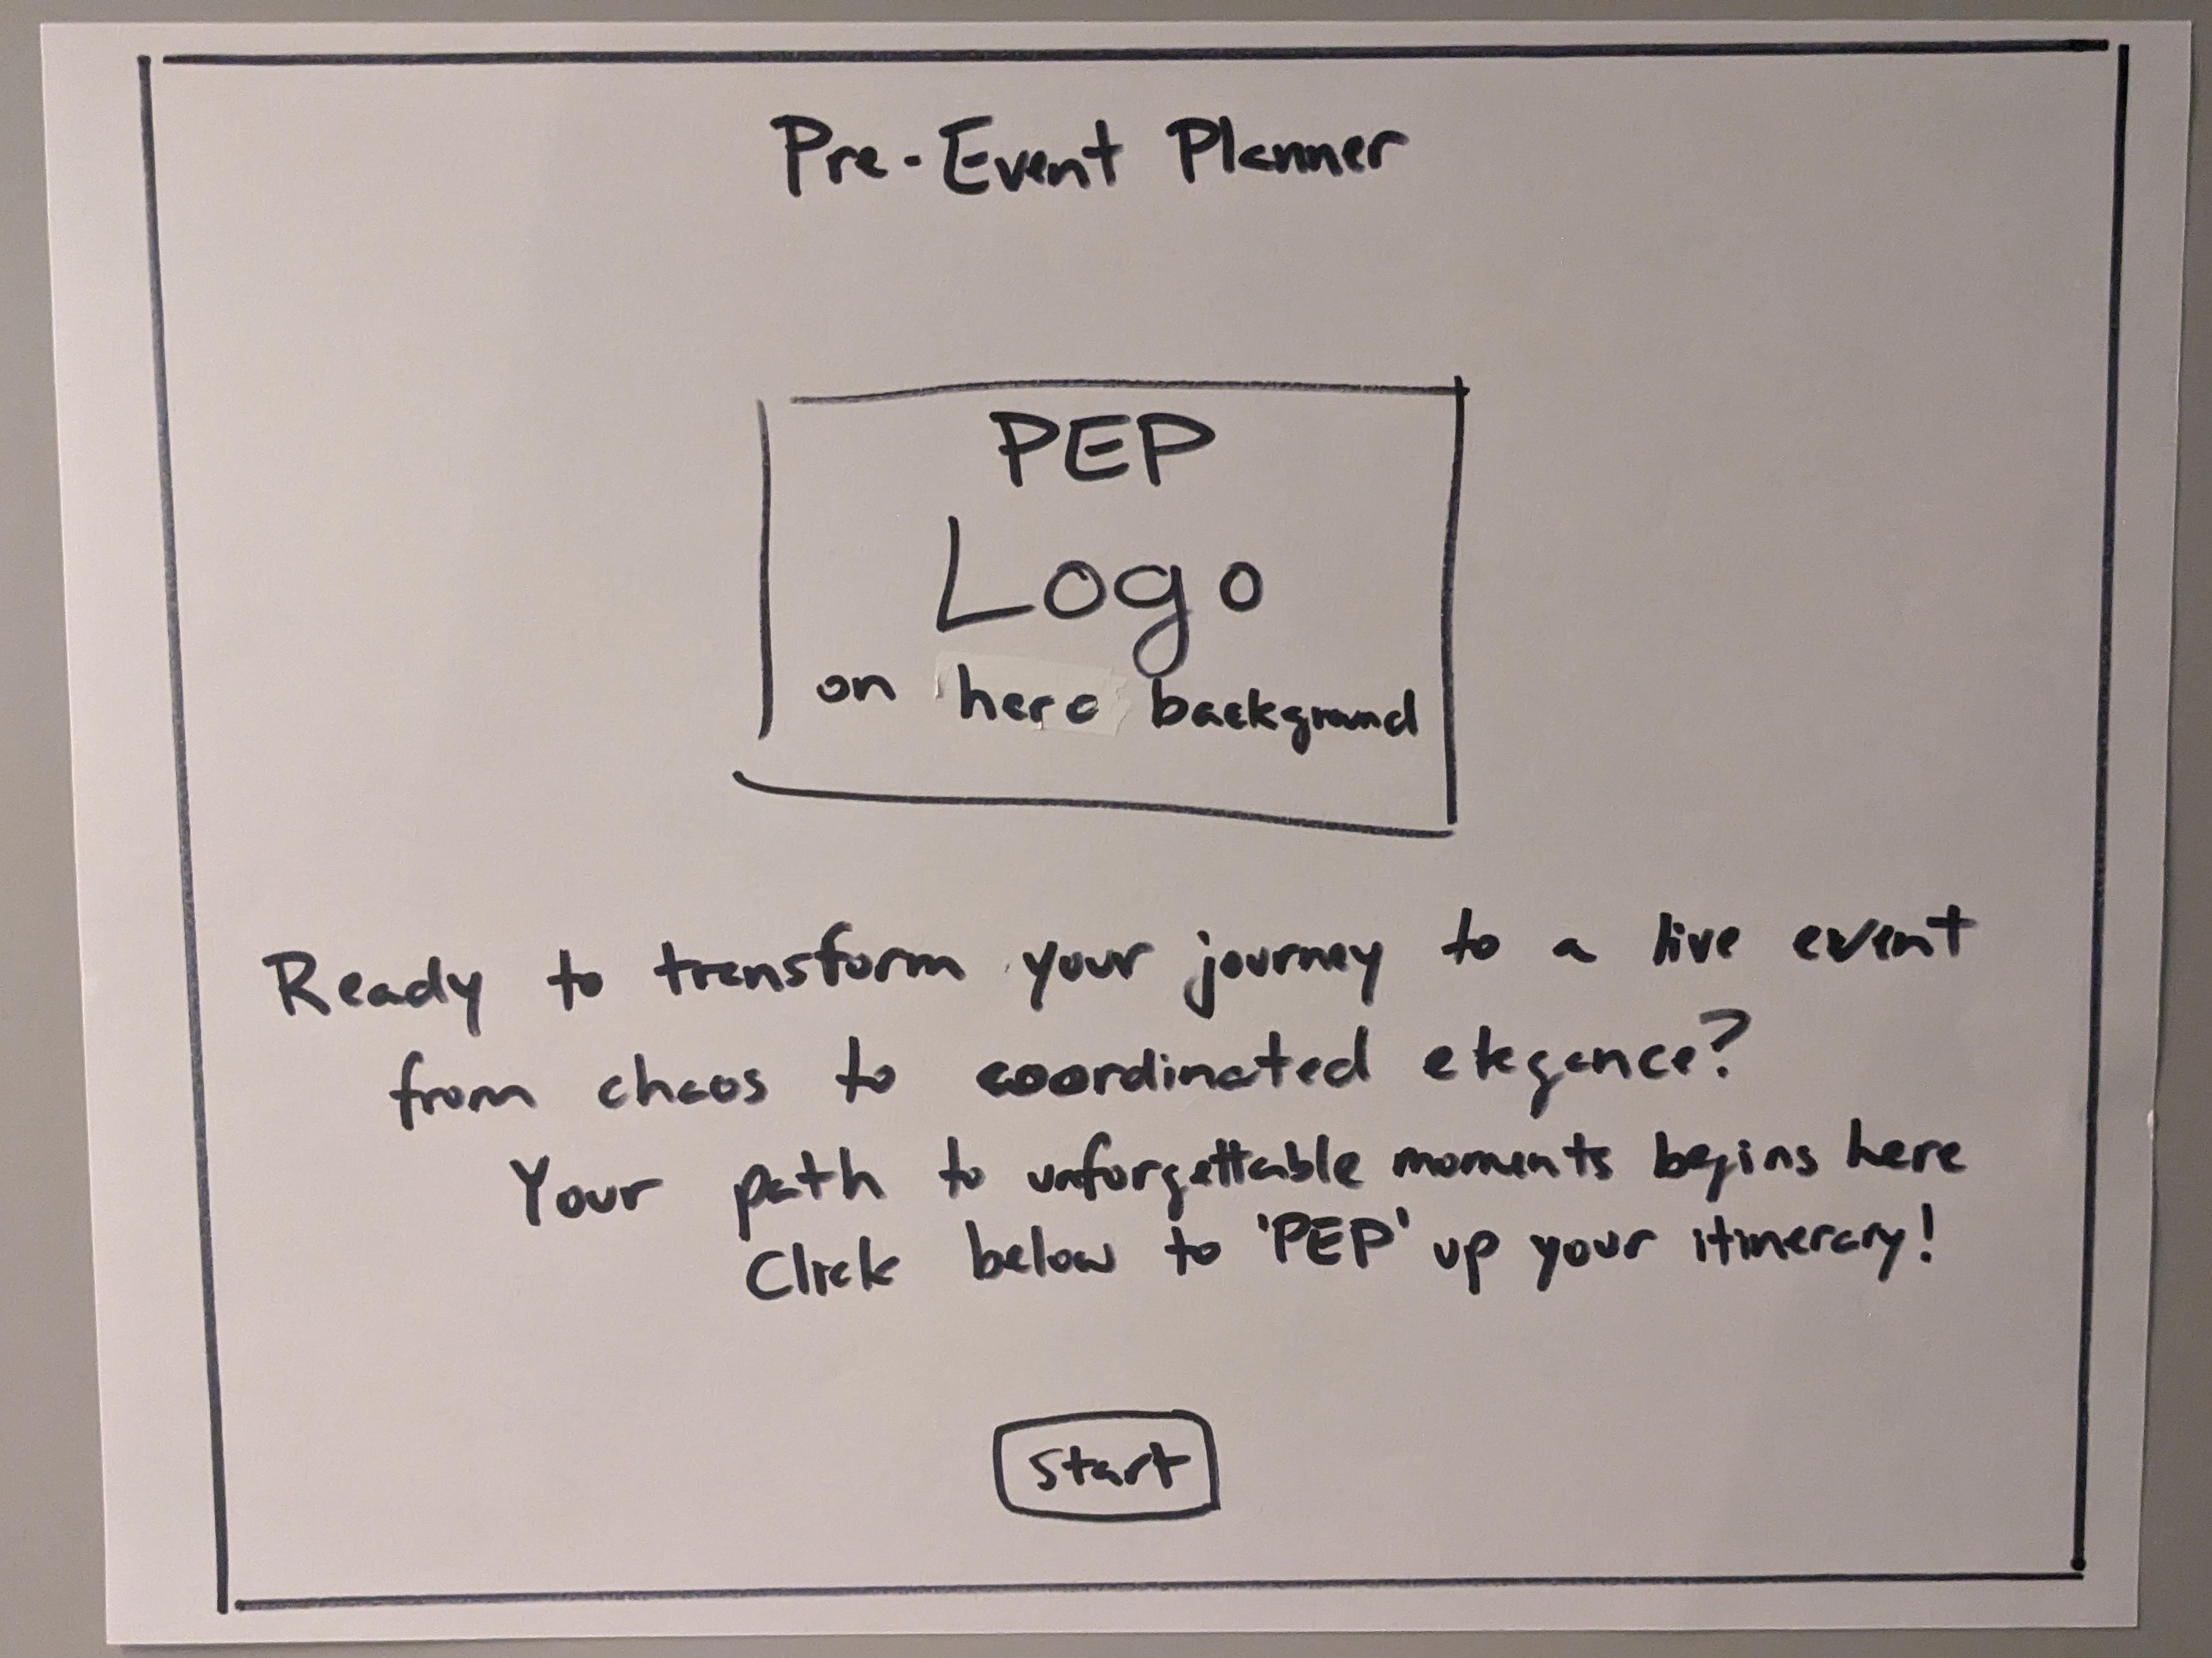 Pre-Event Planner
PEP
Logo
on hero background
Ready to transform your journey to a live event
from chaos to coordinated elegance?
Your path to unforgettable moments begins here
Click below to 'PEP' up your itinerary!
Start